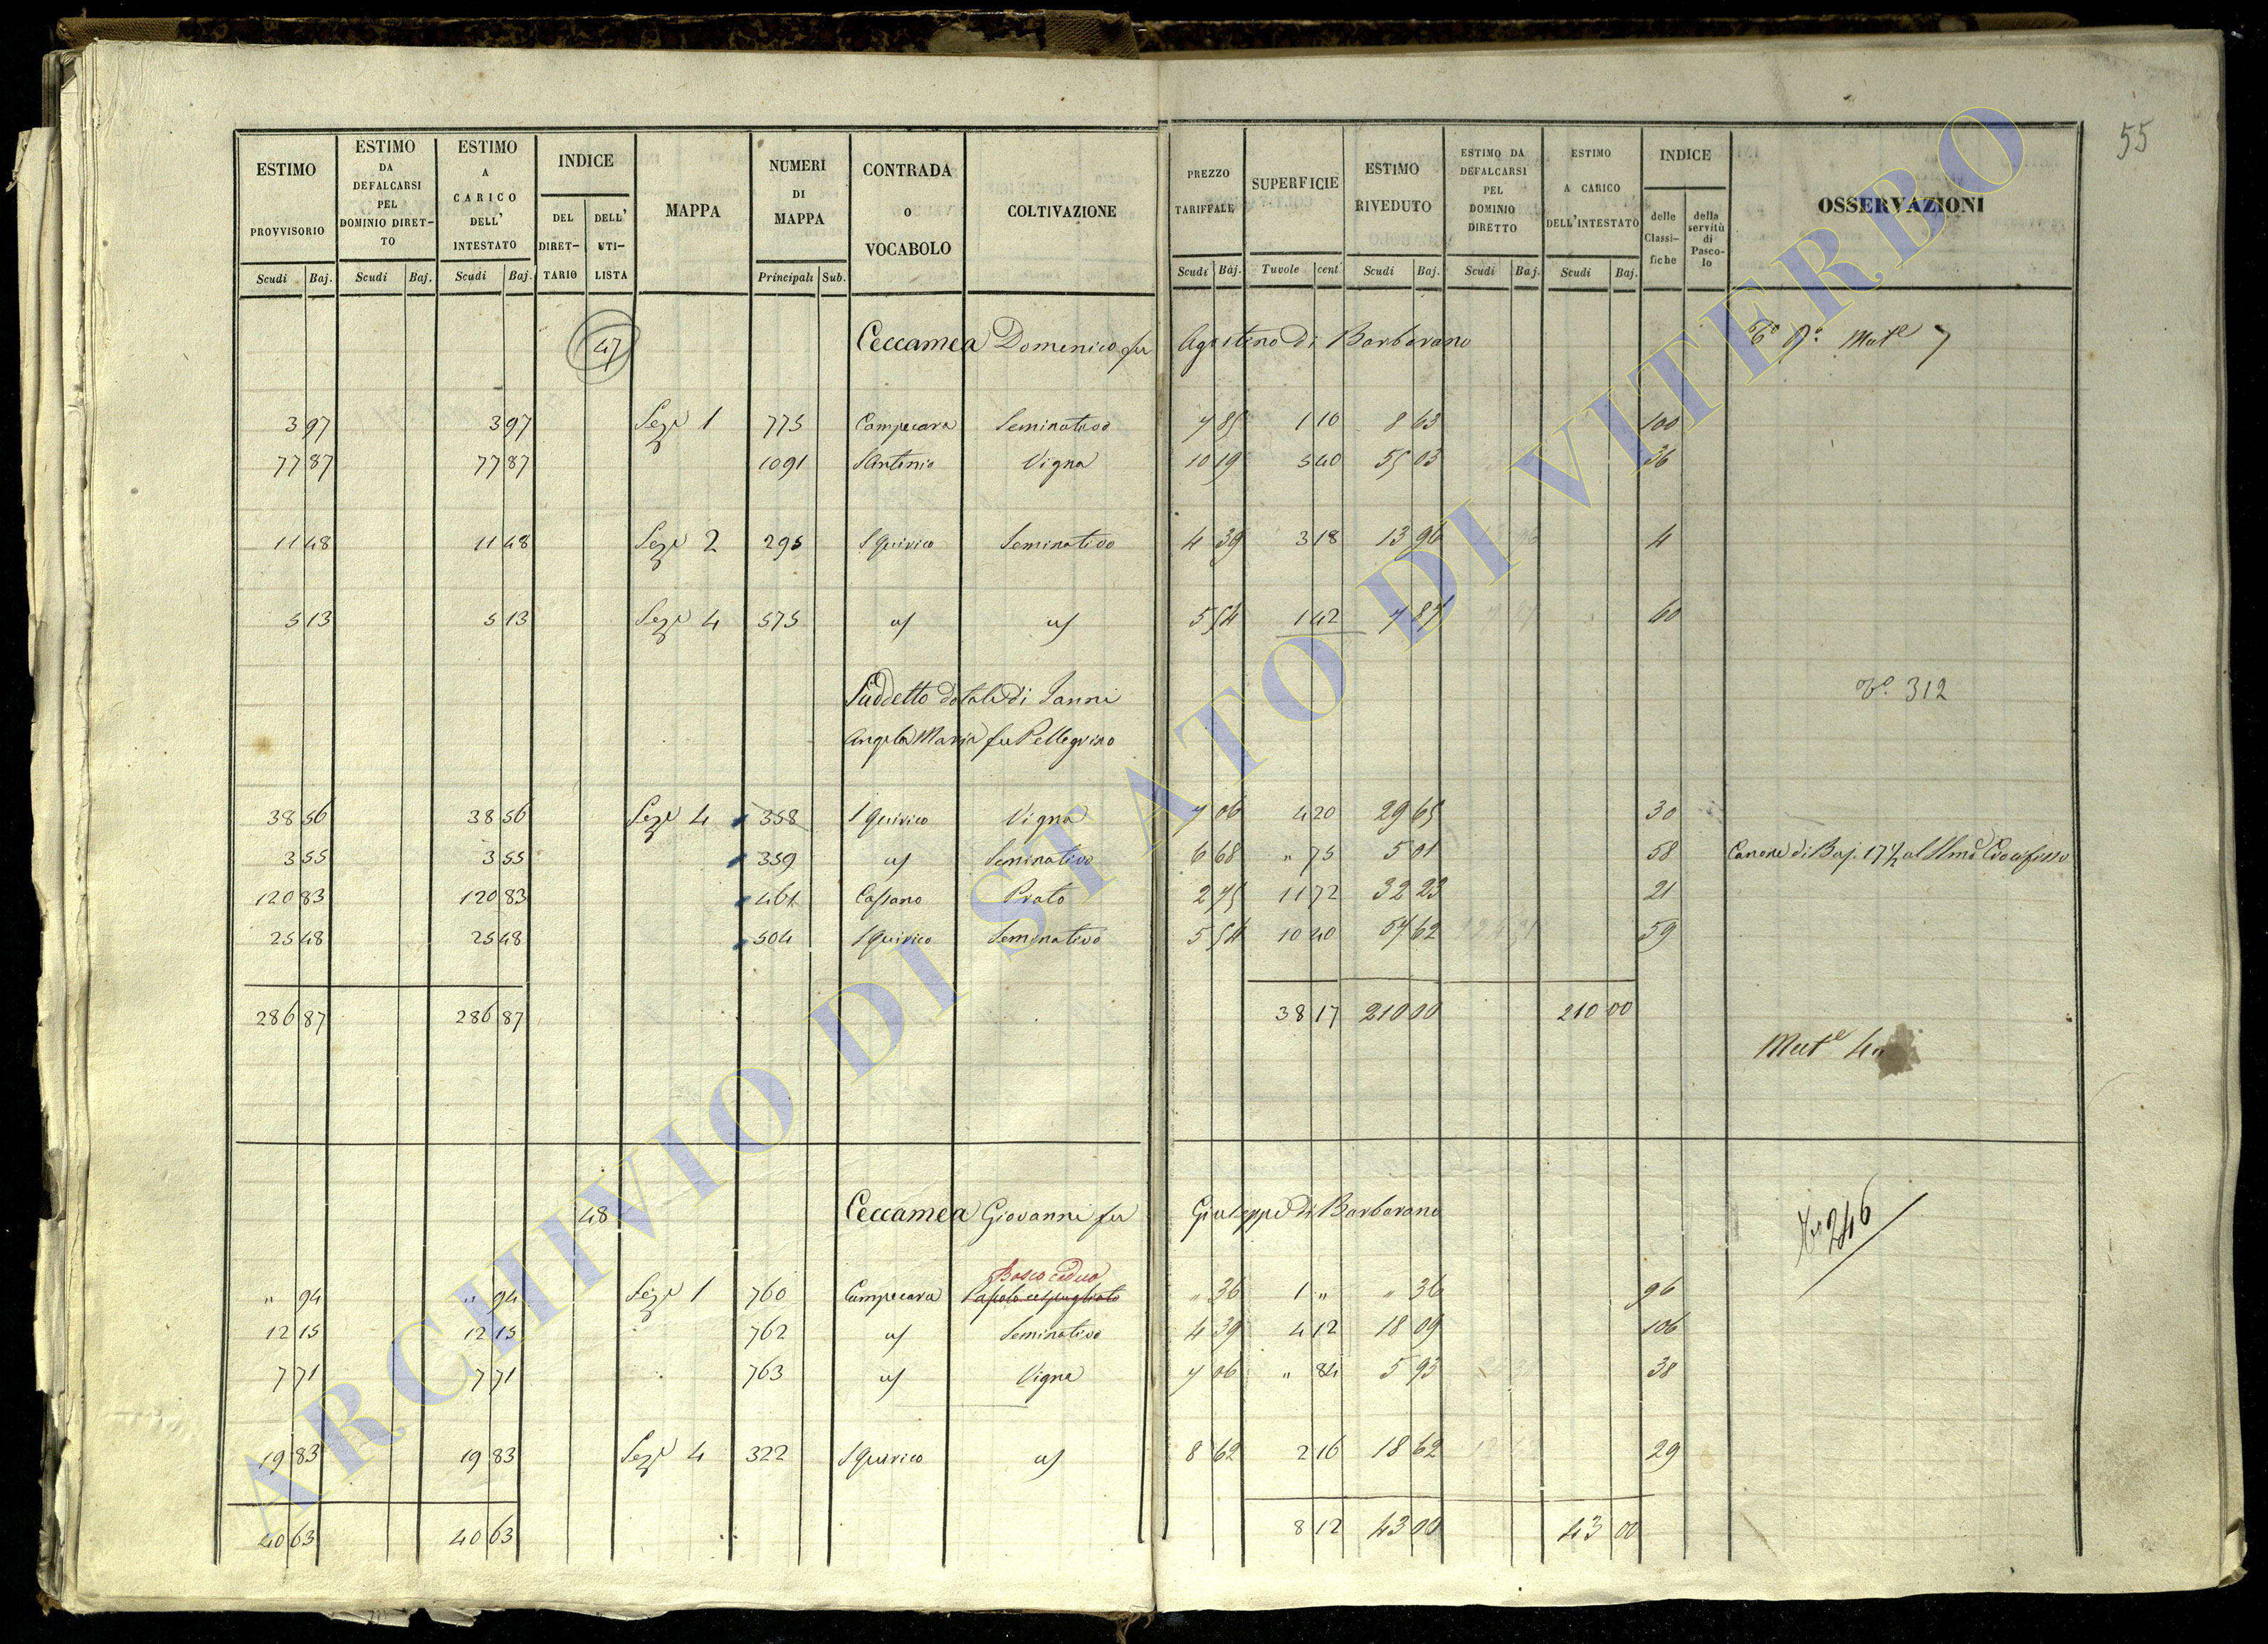 55
ESTIMO PROVVISORIO Scudi Baj.
ESTIMO DA DEFALCARSI PEL DOMINIO DIRETTO Scudi Baj.
ESTIMO A CARICO DELL' INTESTATO Scudi Baj.
INDICE DEL DIRETTARIO DELL' UTILISTA
MAPPA
NUMERI DI MAPPA Principali Sub.
CONTRADA O VOCABOLO
COLTIVAZIONE
PREZZO TARIFFALE Scudi Baj.
SUPERFICIE Tavole cent
ESTIMO RIVEDUTO Scudi Baj.
ESTIMO DA DEFALCARSI PEL DOMINIO DIRETTO Scudi Baj.
ESTIMO A CARICO DELL'INTESTATO Scudi Baj.
INDICE delle Classifiche della servitù di Pascolo
OSSERVAZIONI
47 Ceccamea Domenico fu Agostino di Barbarano Mut.e 7
3 97 3 97 Sez.e 1 775 Campecava Seminativo 7 85 1 10 8 63 100
77 87 77 87 1091 S Antonio Vigna 10 19 5 40 55 03 36
11 48 11 48 Sez.e 2 295 S Quirico Seminativo 4 39 3 18 13 96 4
5 13 5 13 Sez.e 4 575 a/ a/ 5 54 1 42 7 87 60
Suddetto dotale di Janni
Angela Maria fu Pellegrino
V.o 312
38 56 38 56 Sez.e 4 358 S Quirico Vigna 7 06 4 20 29 65 30
3 55 3 55 359 a/ Seminativo 6 68 " 75 5 01 58 Canone di Baj. 17½ al SSmo Crocifisso
120 83 120 83 461 Cassano Prato 2 75 11 72 32 23 21
25 48 25 48 504 S Quirico Seminativo 5 54 10 40 57 62 59
286 87 286 87 38 17 210 00 210 00
Mut.e 4
48 Ceccamea Giovanni fu Giuseppe di Barbarano 246
Bosco ceduo
" 94 " 94 Sez.e 1 760 Campecava Pascolo cespugliato " 36 1 " " 36 96
12 15 12 15 762 a/ Seminativo 4 39 4 12 18 09 106
7 71 7 71 763 a/ Vigna 7 06 " 84 5 93 38
19 83 19 83 Sez.e 4 322 S Quirico a/ 8 62 2 16 18 62 29
40 63 40 63 8 12 43 00 43 00
ARCHIVIO DI STATO DI VITERBO